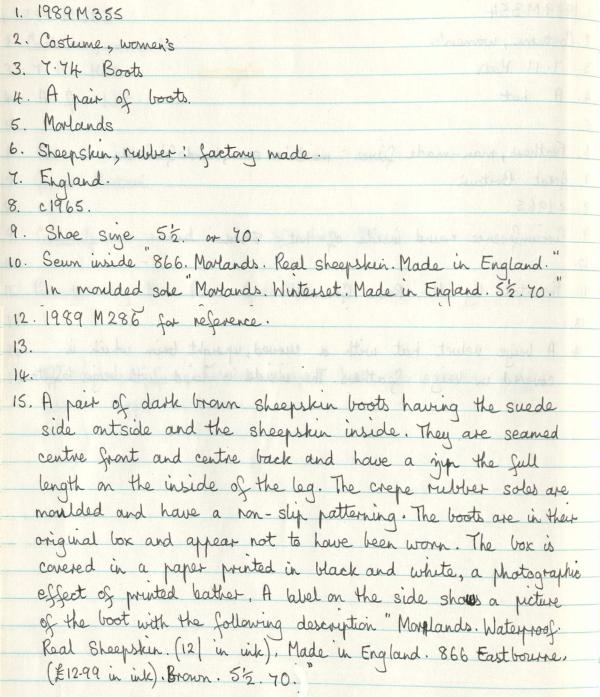 1. 1989M355
2. Costume, women's
3. 7.74 Boots
4. A pair of boots.
5. Morlands
6. Sheepskin, rubber: factory made.
7. England.
8. c1965.
9. Shoe size 5½. or 70.
10. Sewn inside "866. Morlands. Real sheepskin. Made in England."
In moulded sole "Morlands. Winterset. Made in England. 5½. 70."
12. 1989 M286 for reference.
13.
14.
15. A pair of dark brown sheepskin boots having the suede
side outside and the sheepskin inside. They are seamed
centre front and centre back and have a zip the full
length on the inside of the leg. The crepe rubber soles are
moulded and have a non-slip patterning. The boots are in their
original box and appear not to have been worn. The box is
covered in a paper printed in black and white, a photographic
effect of printed leather. A label on the side shows a picture
of the boot with the following description "Morlands. Waterproof.
Real Sheepskin. (12/ in ink). Made in England. 866 Eastbourne.
(£12-99 in ink). Brown. 5½. 70."